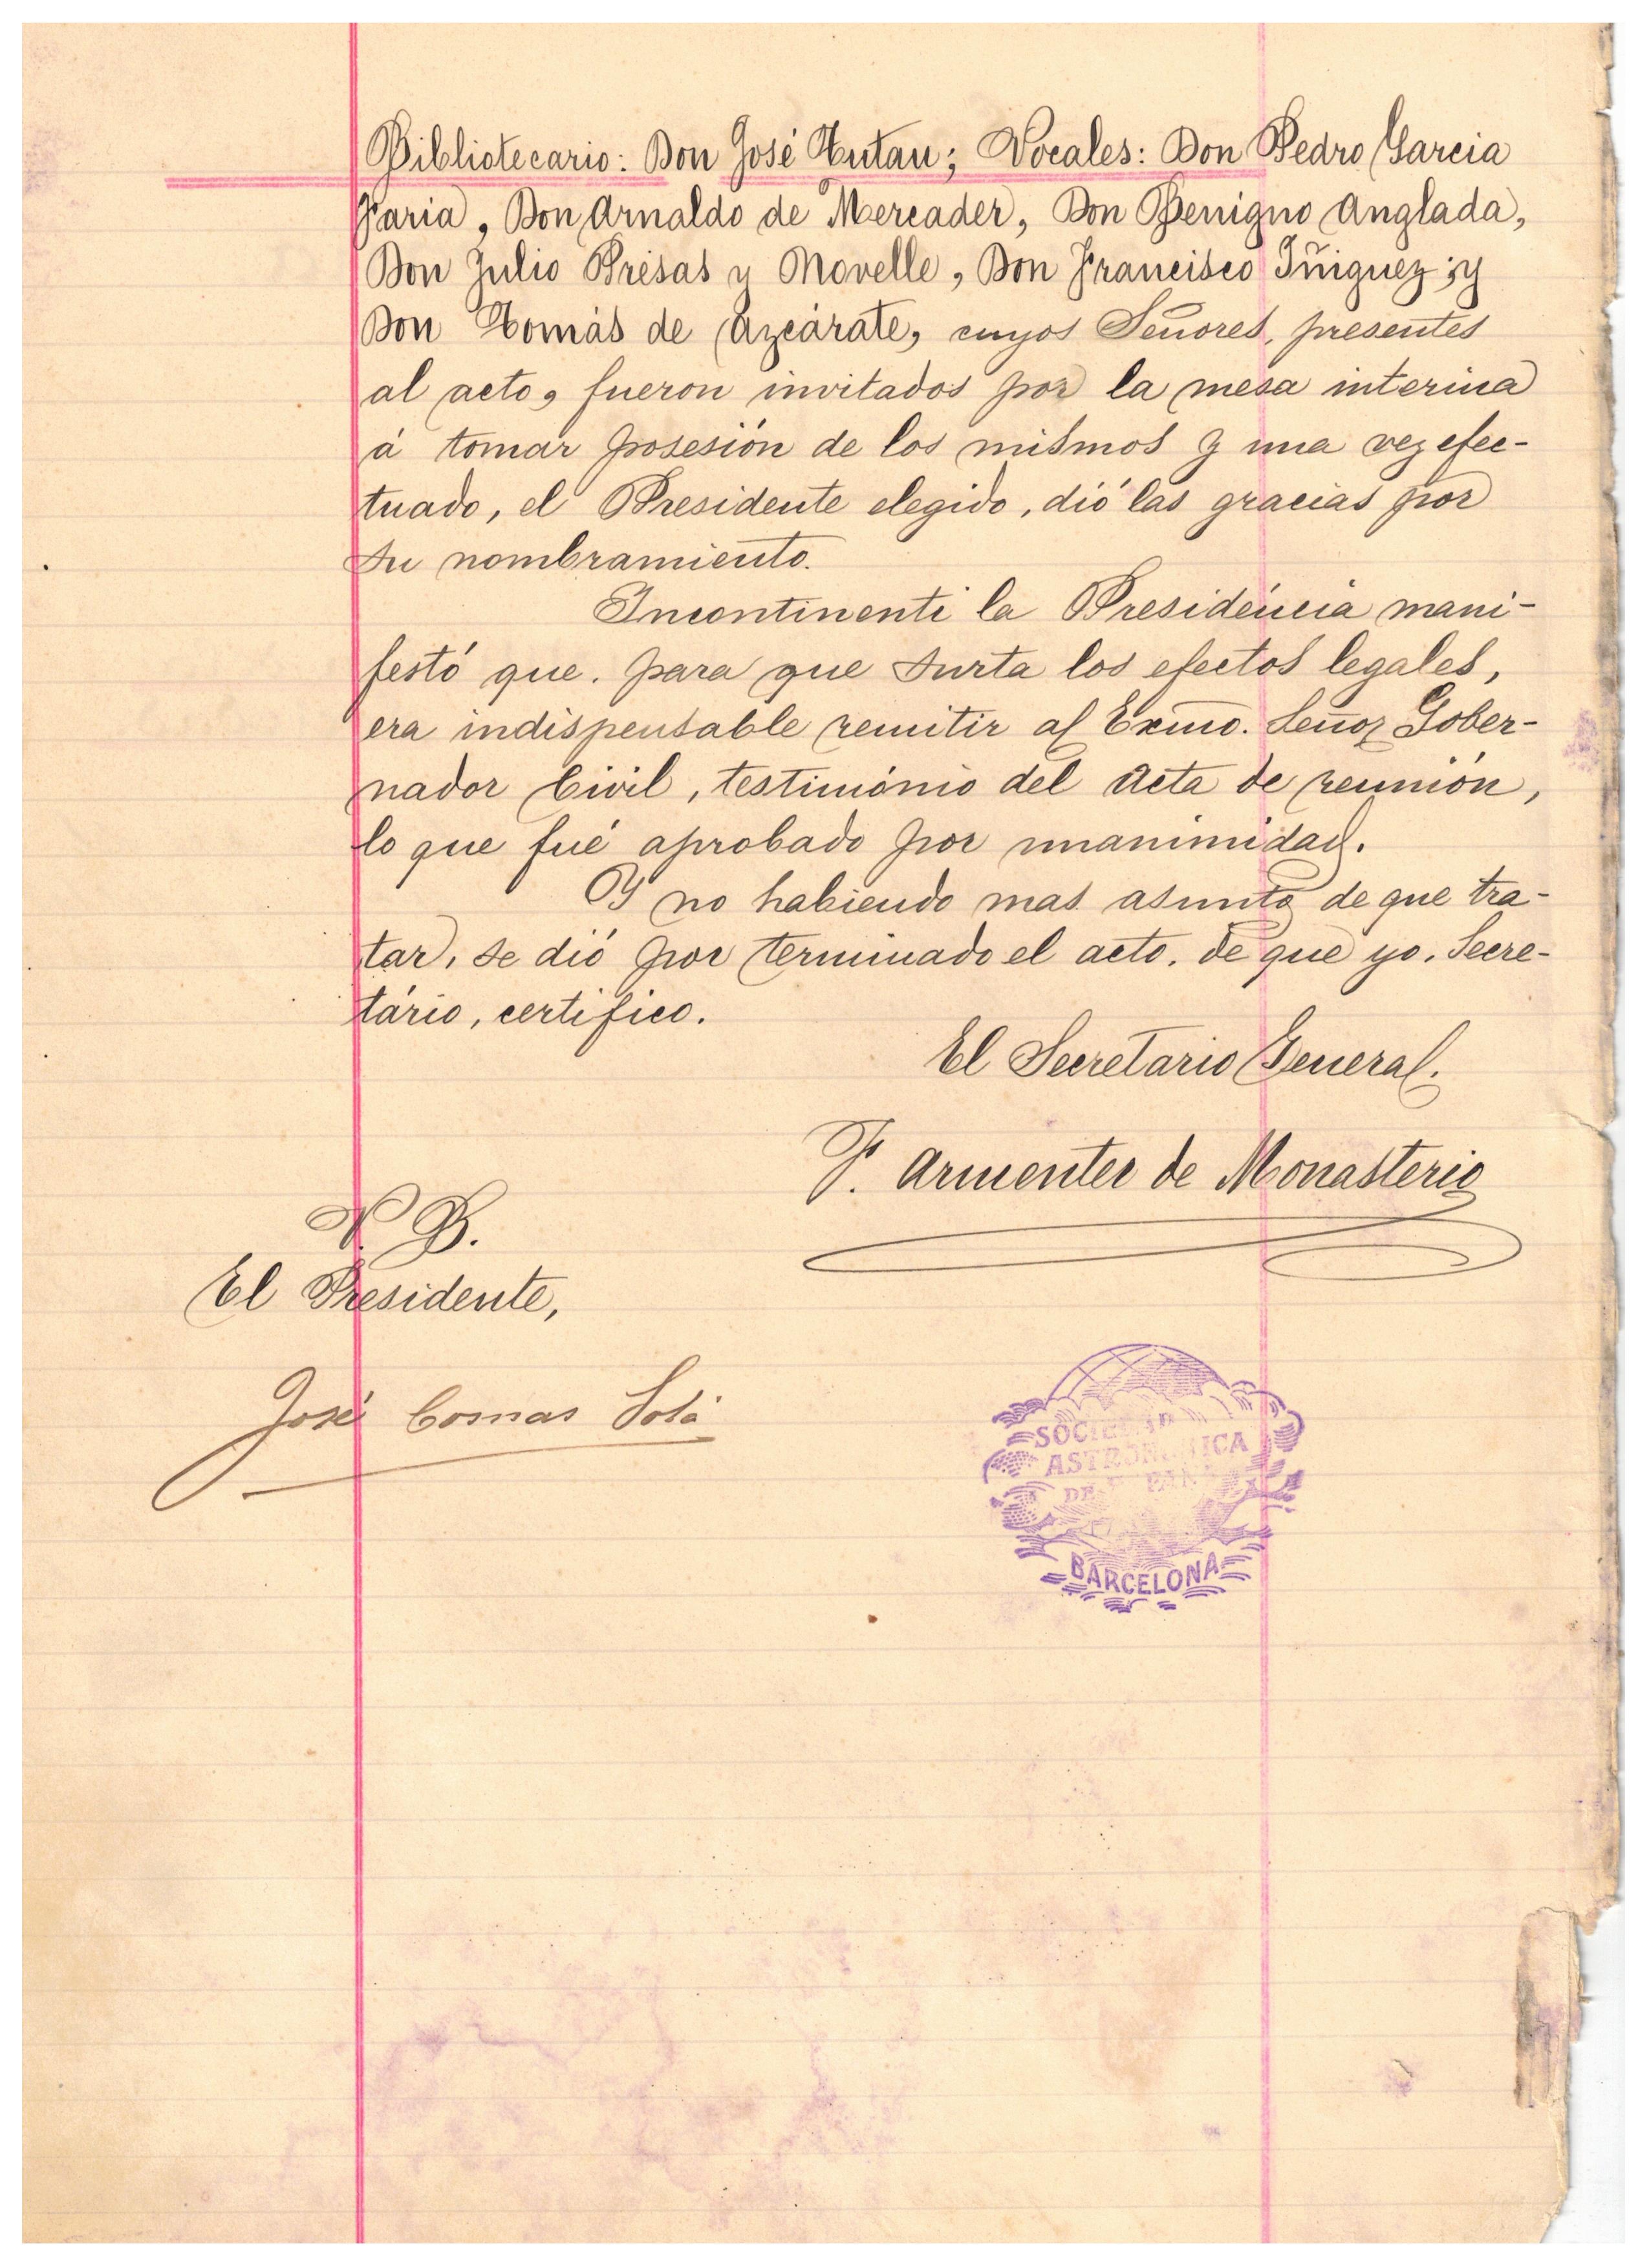 Bibliotecario: Don José Tutau; Vocales: Don Pedro Garcia
Faria, Don Arnaldo de Mercader, Don Benigno Anglada,
Don Julio Présas y Movelle, Don Francisco Iñiguez; y
Don Tomás de Azcárate, cuyos Señores, presentes
al acto, fueron invitados por la mesa interina
á tomar posesión de los mismos y una vez efec-
tuado, el Presidente elegido, dió las gracias por
su nombramiento.
Incontinenti la Presidéncia mani-
festó que. para que surta los efectos legales,
era indispensable remitir al Exmo. Señor Gober-
nador Civil, testimónio del Acta de reunión,
lo que fué aprobado por unanimidad.
Y no habiendo mas asunto de que tra-
tar, se dió por terminado el acto. de que yo. Secre-
tário, certifico.
El Secretario General.
P. Armenter de Monasterio
V. B.
El Presidente,
José Comas Solá
SOCIEDAD
ASTRONOMICA
DE ESPAÑA
BARCELONA